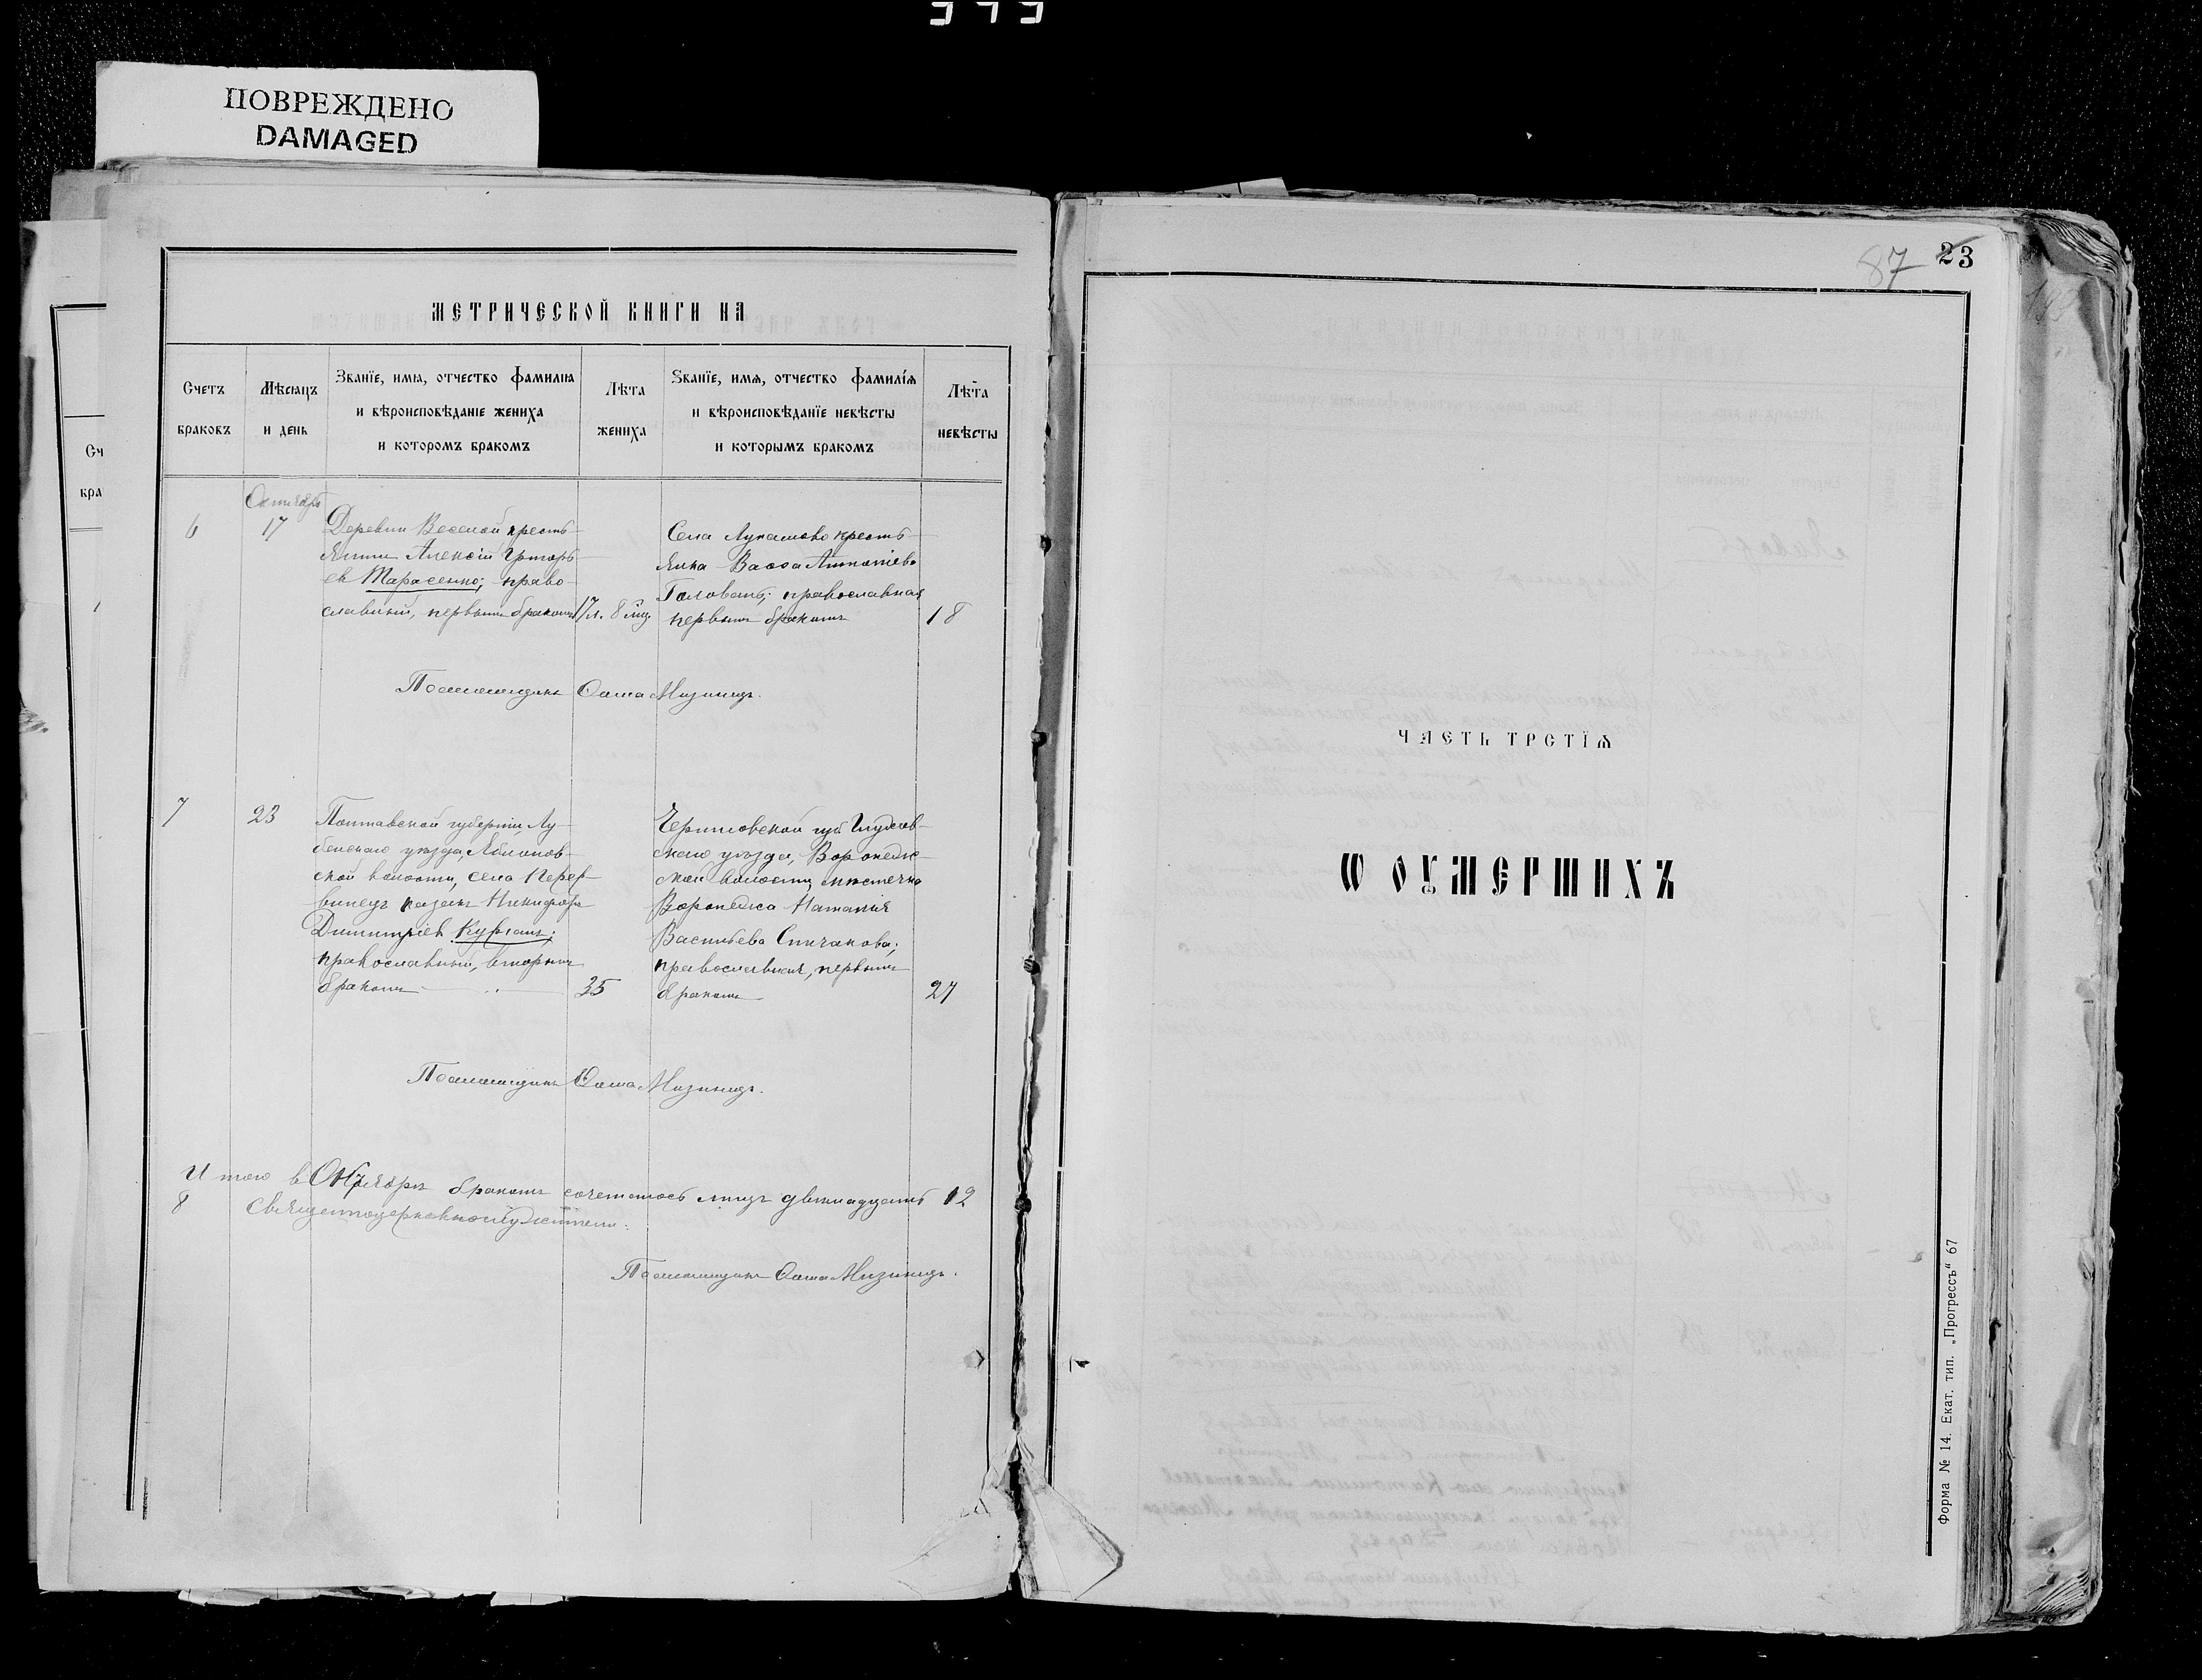 ПОВРЕЖДЕНО
DAMAGED
МЕТРИЧЕСКОЙ КНИГИ НА
Счетъ браковъ
Мѣсяцъ и день
Званїе, имя, отчество фамилія
и вѣроисповѣданіе жениха
и которомъ бракомъ
Лѣта жениха
Званїе, имя, отчество фамилїя
и вѣроисповѣданїе невѣсты
и которымъ бракомъ
Лѣта невѣсты
Октябрь
6
17
Деревни Веселой кресть-
янин Алексій Григорь-
ев Тарасенко; право-
славный, первым браком
17 л. 8 мц.
Села Лукашово кресть-
янка Васса
Головань; православная
первым браком
18
7
23
Полтавской губерніи, Лу-
бенскаго уѣзда,
ской волости, села Перер-
винец казак Никифор
Димитріев Курганъ;
православный, вторым
браком
35
Черниговской губ. Глухов-
скаго уѣзда, Воронеж-
ской волости, мѣстечка
Воронежа Наталія
Васильева Спичакова;
православная, первым
браком
27
Итого в Октябрѣ браком сочеталось лиц двѣнадцать 12
8
ЧАСТЬ ТРЕТЇЯ
Ѡ ОУМЕРШИХЪ
87
23
Форма № 14. Екат. тип. „Прогрессъ“ 67
Сч
бра